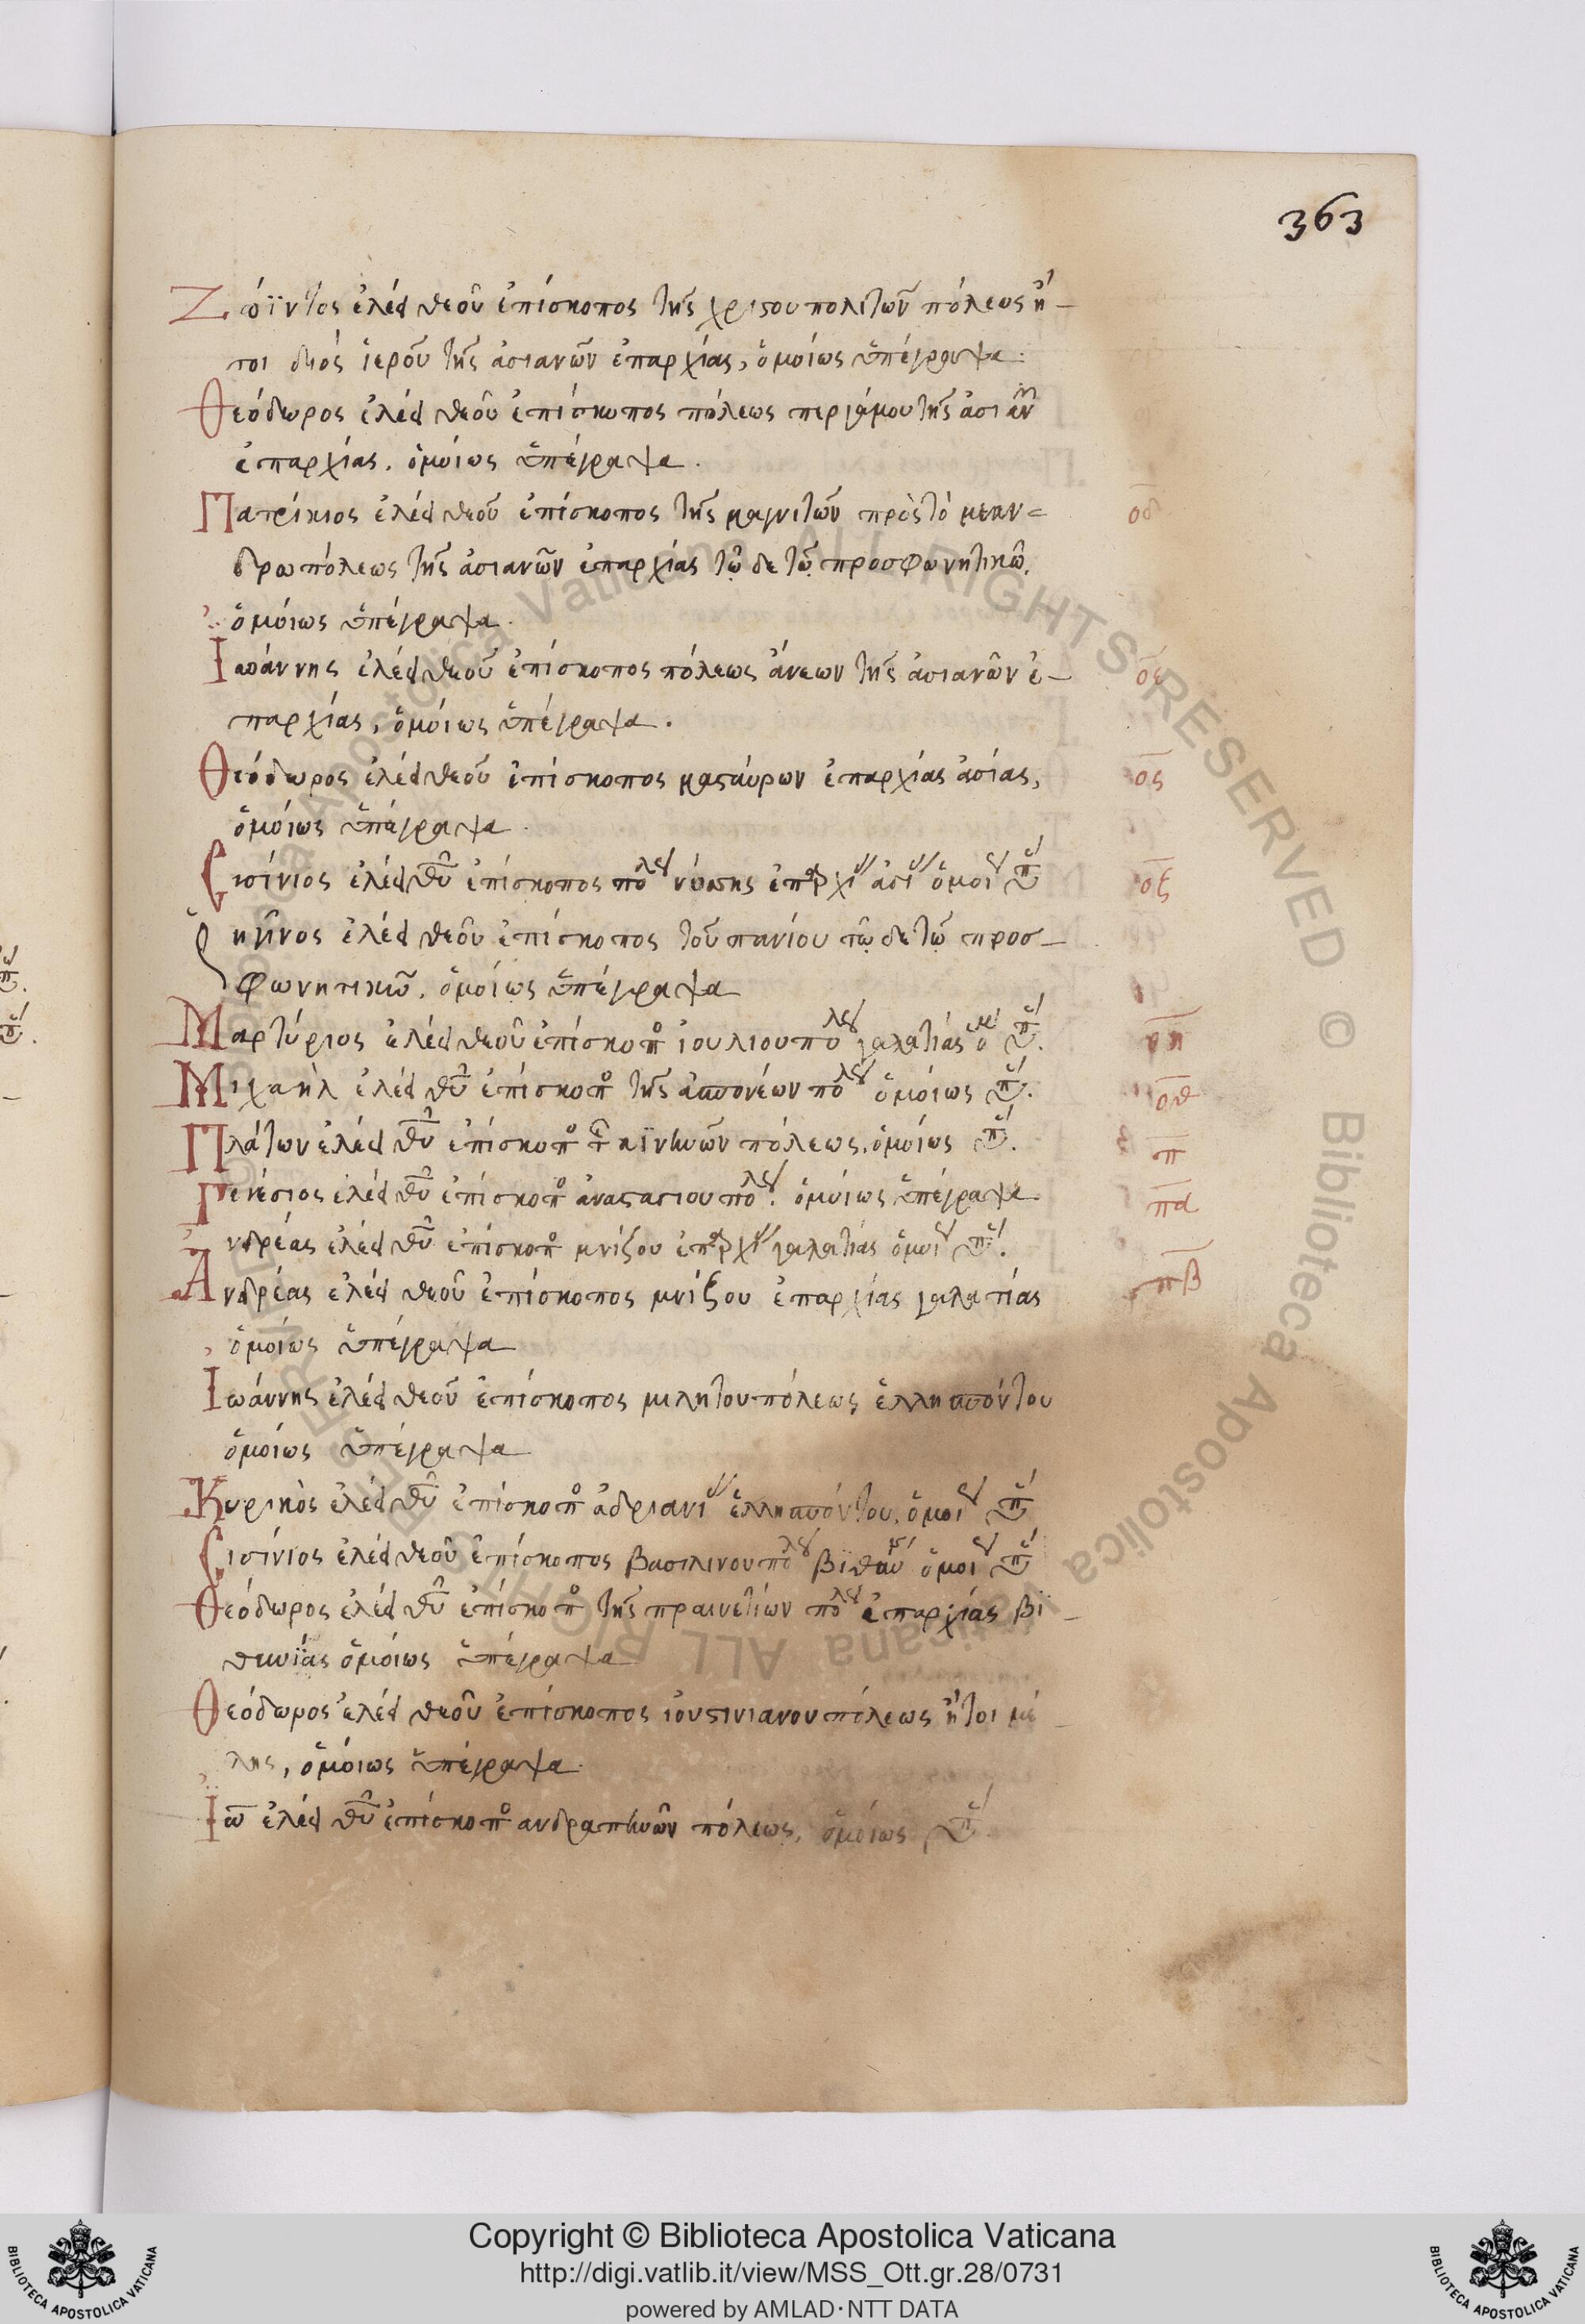 363
Ζώϊντος ἐλέει θεοῦ ἐπίσκοπος τῆς χριςουπολιτῶν πόλεως ἤ-
τοι διός ἱεροῦ τῆς ἀσιανῶν ἐπαρχίας, ὁμοίως ὑπέγραψα.
Θεόδωρος ἐλέει θεοῦ ἐπίσκοπος πόλεως περγάμου τῆς ἀσιαν
ἐπαρχίας. ὁμοίως ὑπέγραψα.
Πατρίκιος ἐλέει θεοῦ ἐπίσκοπος τῆς μαγνιτῶν πρὸς τὸ μεαν= οδ
δρω πόλεως τῆς ἀσιανῶν ἐπαρχίας τῷ δε τῷ προσφωνητικῶ.
ὁμοίως ὑπέγραψα.
Ἰωάννης ἐλέει θεοῦ ἐπίσκοπος πόλεως ἀνεων τῆς ἀσιανῶν ἐ- οε
παρχίας, ὁμοίως ὑπέγραψα.
Θεόδωρος ἐλέει θεοῦ ἐπίσκοπος μαςαύρων ἐπαρχίας ἀσίας, ος
ὁμοίως ὑπέγραψα.
Σισίνιος ἐλέει θῦ ἐπίσκοπος πολ νύσσης ἐπαρχι ἀσι ὁμοι ὑπ οζ
ζηήϊνος ἐλέει θεοῦ ἐπίσκοπος τοῦ πανίου τῷ δε τῷ προσ-
φωνητικῶ. ὁμοίως ὑπέγραψα
Μαρτύριος ἐλέει θεοῦ ἐπίσκοπο ἰουλιουπολ γαλατίας ὁμ ὑπ. οη
Μιχαὴλ ἐλέει θῦ ἐπίσκοπο τῆς ἀσπονέων πολ ὁμοίως ὑπ. οθ
Πλάτων ἐλέει θῦ ἐπίσκοπο τ κϊνηνῶν πόλεως, ὁμοίως ὑπ. π
Γενέσιος ἐλέει θῦ ἐπίσκοπο ἀναςασιουπολ. ὁμοίως ὑπέγραψα πα
νδρέας ἐλέει θῦ ἐπίσκοπο μνίζου ἐπαρχι γαλατίας ὁμοι ὑπ.
Ἀνδρέας ἐλέει θεοῦ ἐπίσκοπος μνίζου ἐπαρχίας γαλατίας πβ
ὁμοίως ὑπέγραψα
Ἰωάννης ἐλέει θεοῦ ἐπίσκοπος μιλητουπόλεως ἑλλησπόντου
ὁμοίως ὑπέγραψα
Κυρικὸς ἐλέει θῦ ἐπίσκοπο ἀδριανι ἑλλησπόντου, ὁμοι ὑπ
Σισίνιος ἐλέει θεοῦ ἐπίσκοπος βασιλινουπολ βϊθυν ὁμοι ὑπ
Θεόδωρος ἐλέει θῦ ἐπίσκοπο τῆς πραινετίων πολ ἐπαρχίας βϊ-
θυνίας ὁμοίως ὑπέγραψα
Θεόδωρος ἐλέει θεοῦ ἐπίσκοπος ἰουςινιανουπόλεως ἤτοι μέ-
λης, ὁμοίως ὑπέγραψα.
Ἰω ἐλέει θῦ ἐπίσκοπο ανδραπηνῶν πόλεως, ὁμοίως ὑπ
Copyright © Biblioteca Apostolica Vaticana
http://digi.vatlib.it/view/MSS_Ott.gr.28/0731
powered by AMLAD·NTT DATA